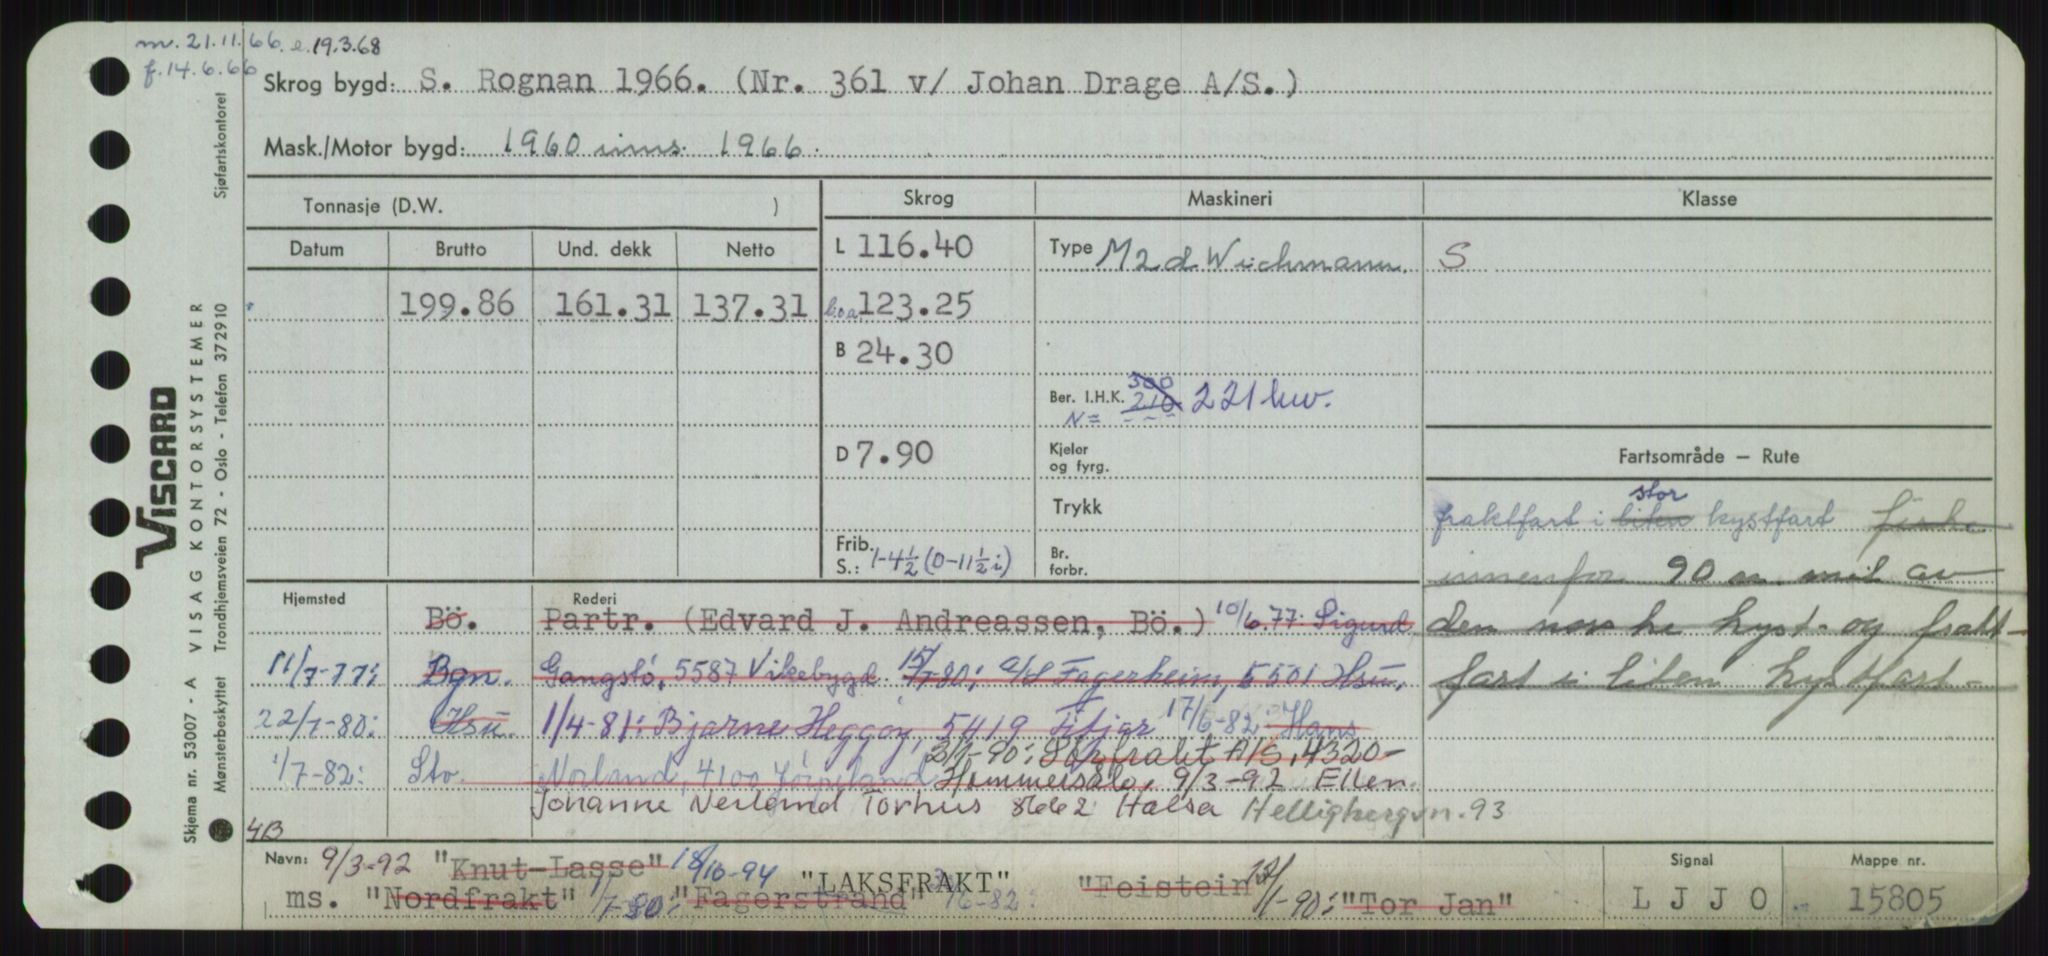 m. 21.11.66. e. 19.3.68
f. 14.6.66
Skrog bygd: S. Rognan 1966. (Nr. 361 v/ Johan Drage A/S.)
Mask./Motor bygd: 1960 inns. 1966.
Tonnasje (D.W. )
Skrog
Maskineri
Klasse
Datum Brutto Und. dekk Netto
L 116.40
Type M2d Wichmann.
S
199.86 161.31 137.31
l.o.a 123.25
B 24.30
Ber. I.H.K. 300 210 221 kw.
N=
D 7.90
Kjeler og fyrg.
Fartsområde – Rute
Trykk
stor
fraktfart i liten kystfart fiske
Frib. S.: 1-4½ (0-11½ i)
Br. forbr.
innenfor 90 n. mil av
Hjemsted Rederi
Bö. Partr. (Edvard J. Andreassen, Bö.) 10/6.77: Sigurd
den norske kyst og frakt-
11/7-77: Bgn. Gangstö, 5587 Vikebygd. 15/7-80: A/S Fagerheim, 5501 Hsu.
fart i liten kystfart-
22/7-80: Hsu. 1/4-81: Bjarne Heggöy, 5419 Fitjar 17/6-82: Hans
2/1-90: Sörfrakt A/S, 4320-
1/7-82: Stv. Norland, 4100 Jörpeland Hommersåk, 9/3-92 Ellen
Johanne Neiland Torhus 8662 Halsa Helligbergvn. 93
4B
Navn: 9/3-92 "Knut-Lasse" 18/10-94 "LAKSFRAKT"
ms. "Nordfrakt" 1/7-80: "Fagerstrand" /6-82: "Feistein" /1-90: "Tor Jan"
Signal
L J J O
Mappe nr.
15805
Skjema nr. 53007 - A VISAG KONTORSYSTEMER
VISCARD
Mønsterbeskyttet Trondhjemsveien 72 - Oslo - Telefon 372910 Sjøfartskontoret